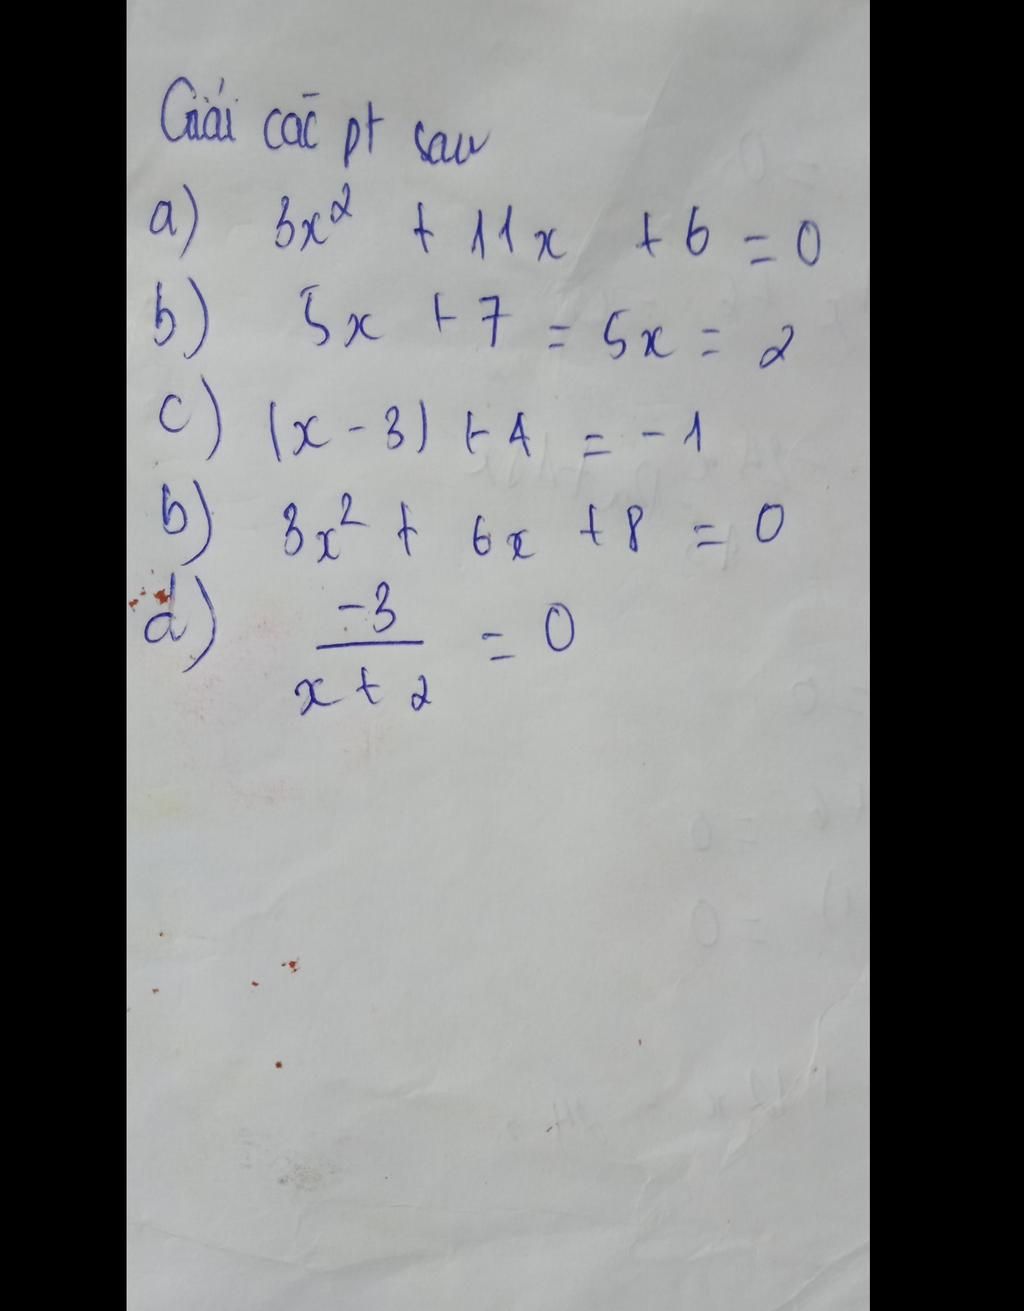 Giải các pt sau
a) 3x² + 11x + 6 = 0
b) 5x + 7 = 5x = 2
c) (x - 3) + 4 = -1
b) 3x² + 6x + 8 = 0
d) -3 / x + 2 = 0